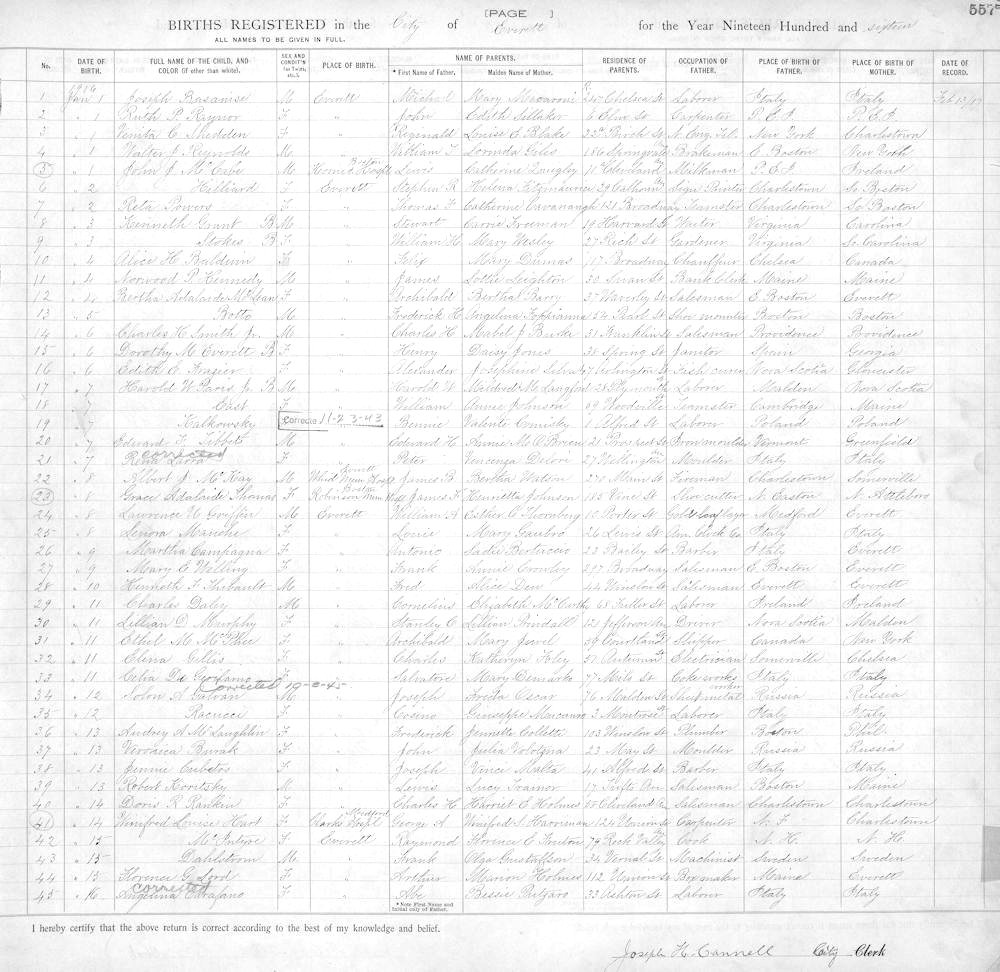 [PAGE ]
557
BIRTHS REGISTERED in the City of Everett for the Year Nineteen Hundred and sixteen
ALL NAMES TO BE GIVEN IN FULL.
No. DATE OF BIRTH. FULL NAME OF THE CHILD, AND COLOR (if other than white). SEX AND CONDIT'N (as Twins, etc.). PLACE OF BIRTH. NAME OF PARENTS. * First Name of Father. Maiden Name of Mother. RESIDENCE OF PARENTS. OCCUPATION OF FATHER. PLACE OF BIRTH OF FATHER. PLACE OF BIRTH OF MOTHER. DATE OF RECORD.
1916
1 Jan 1 Joseph M Everett Michael Mary Chelsea St Laborer Italy Italy
2 " 1 Ruth P. Raynor F " John Edith 6 Elm St Carpenter P. E. I. P. E. I.
3 " 1 F " Reginald Louise E. Blake Birch St N. Eng. Tel. New York Charlestown
4 " 1 Walter J. Reynolds M " William T Lorinda Giles 186 Brakeman E. Boston New York
5 " 1 John J. McCabe M Boston Lewis Catherine Quigley Milkman P. E. I. Ireland
6 " 2 Hilliard F Everett Stephen R. Helena Fitzmaurice 29 Sign Painter Charlestown So Boston
7 " 2 Reta Powers F " Thomas F Catherine Cavanaugh 121 Broadway Teamster Charlestown So Boston
8 " 3 Kenneth Grant B M " Stewart Carrie Freeman 19 Harvard St Waiter Virginia Carolina
9 " 3 Stokes B F " William H. Mary Wesley 27 Rich St Gardener Virginia So Carolina
10 " 4 Alice H. Baldwin F " Felix Mary Dumas 717 Broadway Chauffeur Chelsea Canada
11 " 4 Norwood P. Kennedy M " James Lottie Leighton 30 Swan St Bank Clerk Maine Maine
12 " 4 Bertha Adalaide McLean F " Archibald Bertha Barry 37 Waverly St Salesman E. Boston Everett
13 " 5 Botto M " Frederick H Angelina 54 Pearl St Boston Boston
14 " 6 Charles H. Smith Jr. M " Charles H. Mabel J. Burke 31 Franklin St Salesman Providence Providence
15 " 6 Dorothy M. Everett B F " Henry Daisy Jones 38 Spring St Janitor Spain Georgia
16 " 6 Edith E. Frazier F " Alexander Josephine Silva 47 Arlington St Fish curer Nova Scotia Gloucester
17 " 7 Harold W. Paris Jr. B M " Harold W. Mildred M. Langford 28 Plymouth St Laborer Malden Nova Scotia
18 " 7 East F " William Annie Johnson 69 Woodville St Teamster Cambridge Maine
19 " 7 Kalkowsky Corrected 11-23-43 " Bennie Valenti 1 Alfred St Laborer Poland Poland
20 " 7 Edward F. Tibbets M " Edward H. Annie M. O'Brien 21 Prescott St Iron moulder Vermont Greenfield
corrected
21 " 7 Rena F " Peter Vincenza 27 Wellington Moulder Italy Italy
22 " 8 Albert J. McKay M Everett James B Bertha Watson 270 Main St Fireman Charlestown Somerville
23 " 8 Grace Adalaide Thomas F Boston James F. Hennetta Johnson 185 Vine St Shoe cutter N. Easton N. Attleboro
24 " 8 Lawrence W. Griffin M Everett William A Esther A. Thornburg 10 Porter St Gold leaf layer Medford Everett
25 " 8 Lenora F " Louis Mary Gaubro 26 Lewis St Italy Italy
26 " 9 Martha Campagna F " Antonio Sadie Bertuccio 23 Bailey St Barber Italy Everett
27 " 9 Mary E. Welling F " Frank Annie Crowley 297 Broadway Salesman E. Boston Everett
28 " 10 Kenneth F. Thibault M " Fred Alice Dew 44 Winslow St Salesman Everett Everett
29 " 11 Charles Daley M " Cornelius Elizabeth McCarthy 65 Fuller St Laborer Ireland Ireland
30 " 11 Lillian D. Murphy F " Stanley C Lillian Prindall 121 Jefferson Ave Driver Nova Scotia Malden
31 " 11 Ethel M. McPhee F " Archibald Mary Jewel 59 Courtland St Shipper Canada New York
32 " 11 Elena Gillis F " Charles Katheryn Foley 51 Autumn St Electrician Somerville Chelsea
33 " 11 Celia De Girolamo F " Salvatore Mary Demarke 77 Mils St Coke works Italy Italy
Corrected 19-2-45-
34 " 12 Nolon A. Galvan M " Joseph Oscar 76 Malden St Sheet metal worker Russia Russia
35 " 12 Racucci F " Cosino Giuseppe 3 Montrose St Laborer Italy Italy
36 " 13 Audrey A. McLaughlin F " Frederick Jennette Colletti 103 Winslow St Plumber Boston Phil.
37 " 13 Veronica Burak F " John Julia 23 May St Moulder Russia Russia
38 " 13 Jennie Cubetos F " Joseph Vinci Malta 41 Alfred St Barber Italy Italy
39 " 13 Robert Koritsky M " Lewis Lucy Cramor 17 Tufts Ave Salesman Boston Maine
40 " 14 Doris R. Rankin F " Charles H Harriet E. Holmes 85 Cleveland Ave Salesman Charlestown Charlestown
41 " 14 Winifred Louise Hart F Medford George A. Winifred S. Harriman 124 Union St Carpenter N. F. Charlestown
42 " 15 McIntyre F Everett Raymond Florence E. Fenton 79 Rock Valley Cook N. H. N. H.
43 " 15 Dahlstrom M " Frank Olga Gustafson 34 Vernal St Machinist Sweden Sweden
44 " 15 Florence G. Lord F " Arthur Marion Holmes 112 Union St Box maker Maine Everett
corrected
45 " 16 Angelina F " Abe Bessie 33 Ashton St Labour Italy Italy
* Note First Name and Initial only of Father.
I hereby certify that the above return is correct according to the best of my knowledge and belief.
Joseph H. Cannell City Clerk